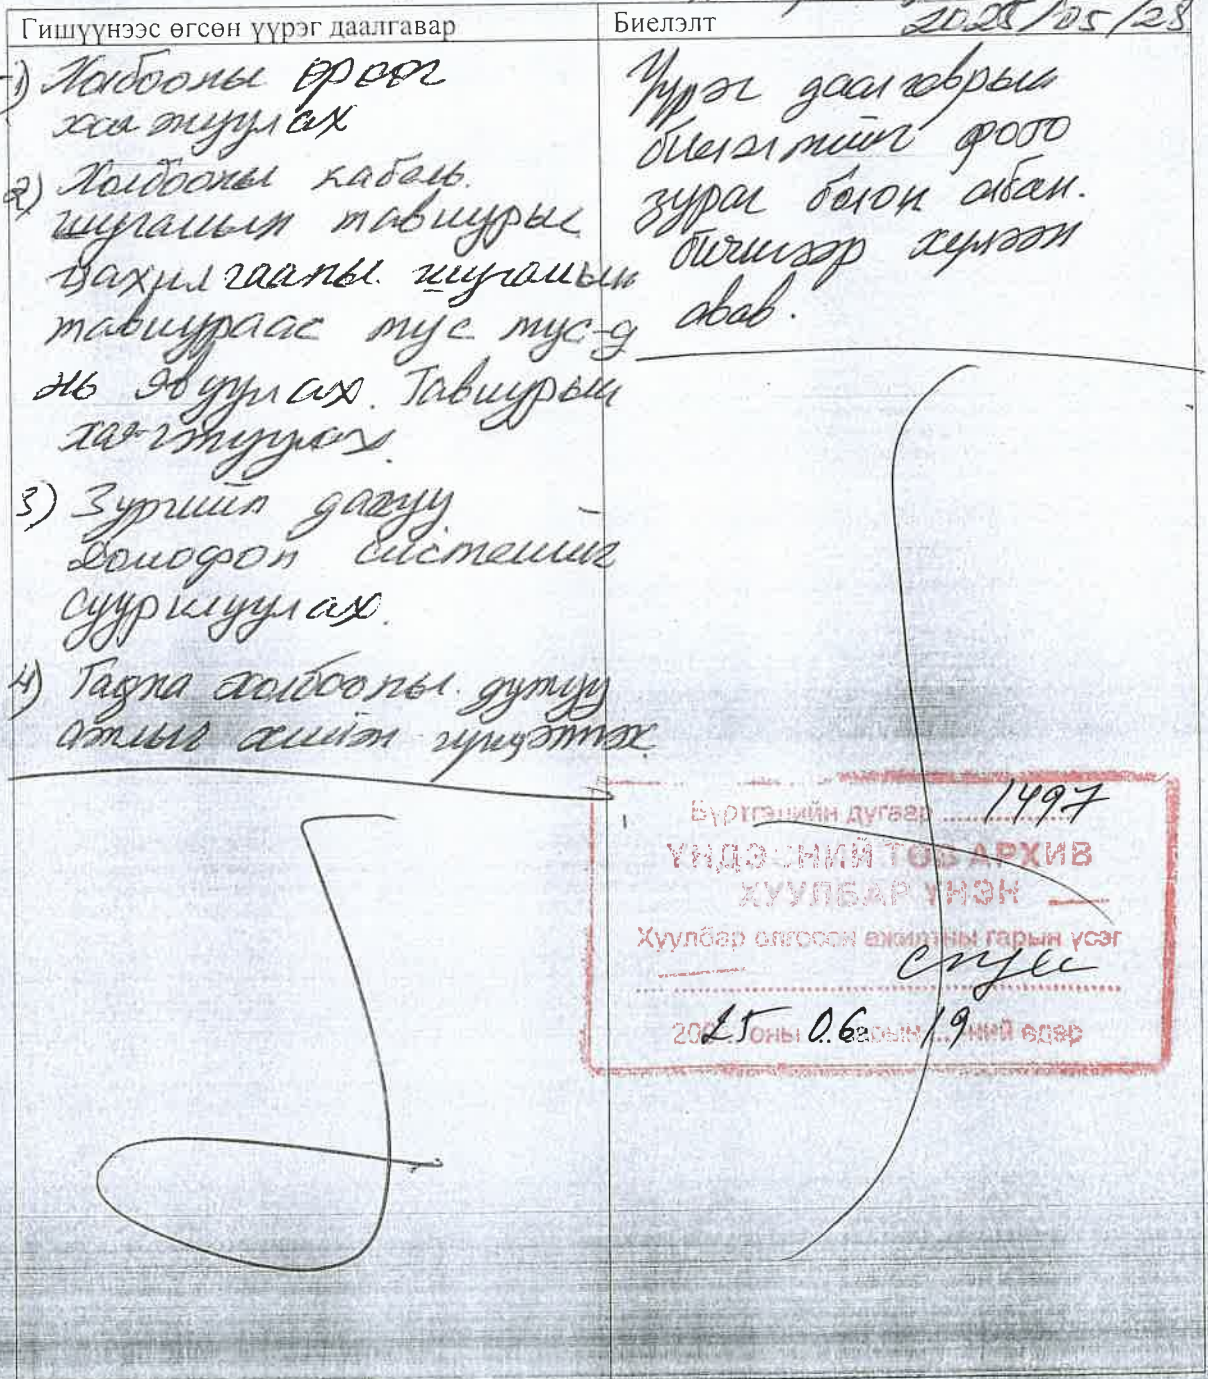 Гишүүнээс өгсөн үүрэг даалгавар
1) Холбооны өрөөг
хаягжуулах
2) Холбооны кабель
шугамын тавиурыг
цахилгааны шугамын
тавиураас тус тус-д
нь явуулах. Тавиурын
хаягжуулах.
3) Зургийн дагуу
домофон системийг
суурилуулах.
4) Гадна холбооны дутуу
ажлыг хийж гүйцэтгэх
Биелэлт
2025/05/23
Үүрэг даалгаврын
биелэлтийг фото
зураг болон албан
бичгээр хүлээн
авав.
Бүртгэлийн дугаар 1497
ҮНДЭСНИЙ ТӨВ АРХИВ
ХУУЛБАР ҮНЭН
Хуулбар олгосон ажилтны гарын үсэг
2025 оны 06 сарын 19 ний өдөр